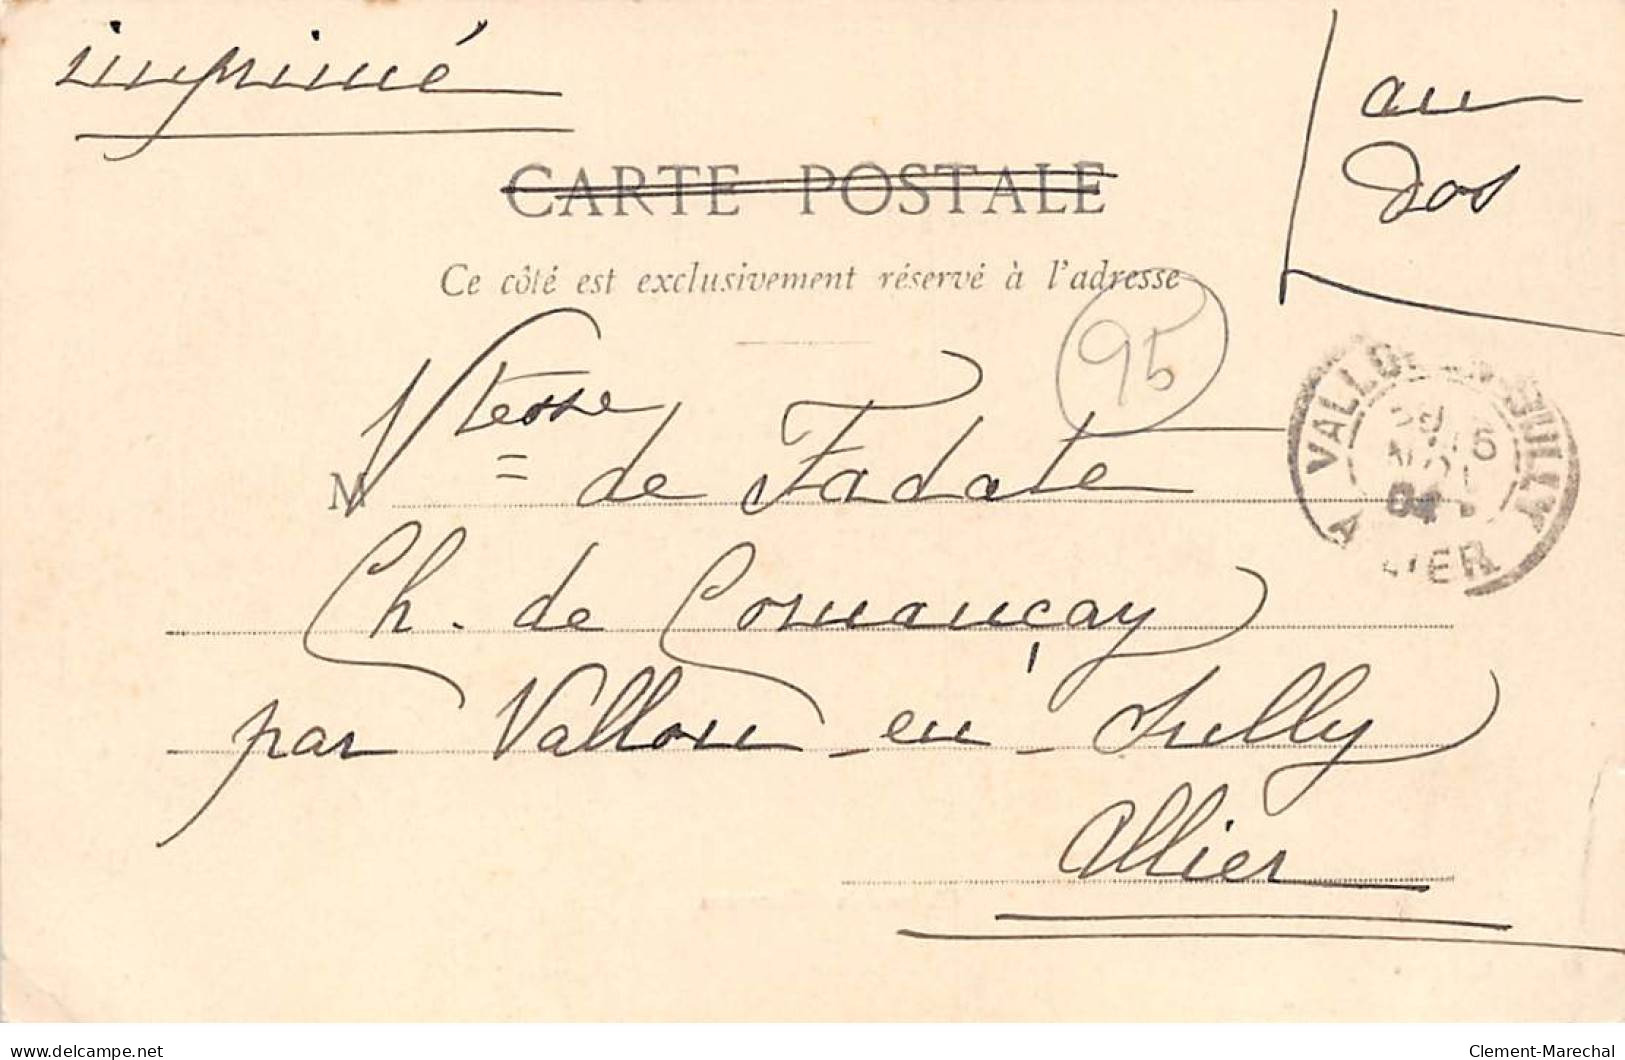 imprimé
au
dos
CARTE POSTALE
Ce côté est exclusivement réservé à l'adresse
95
M Vtesse de Fadate
Ch. de Comançay
par Vallon-en-Sully
Allier
VALLON EN SULLY
04
ALLIER
www.delcampe.net
Clement-Marechal